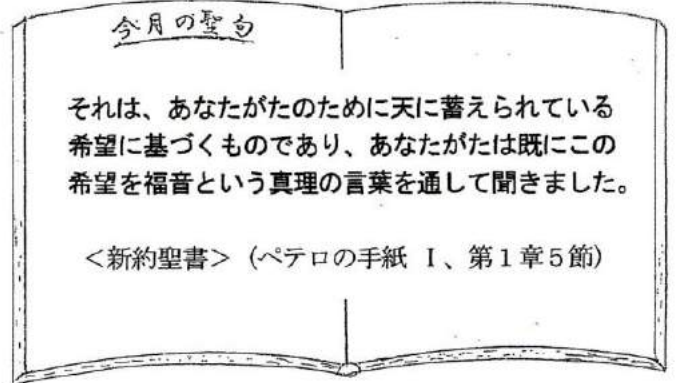 今月の聖句
それは、あなたがたのために天に蓄えられている
希望に基づくものであり、あなたがたは既にこの
希望を福音という真理の言葉を通して聞きました。
＜新約聖書＞（ペテロの手紙 Ⅰ、第１章５節）